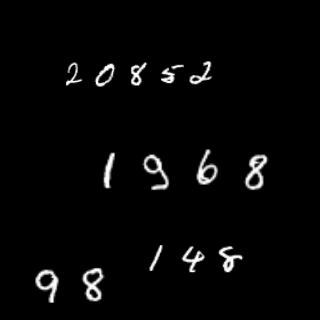 20852
1968
148
98